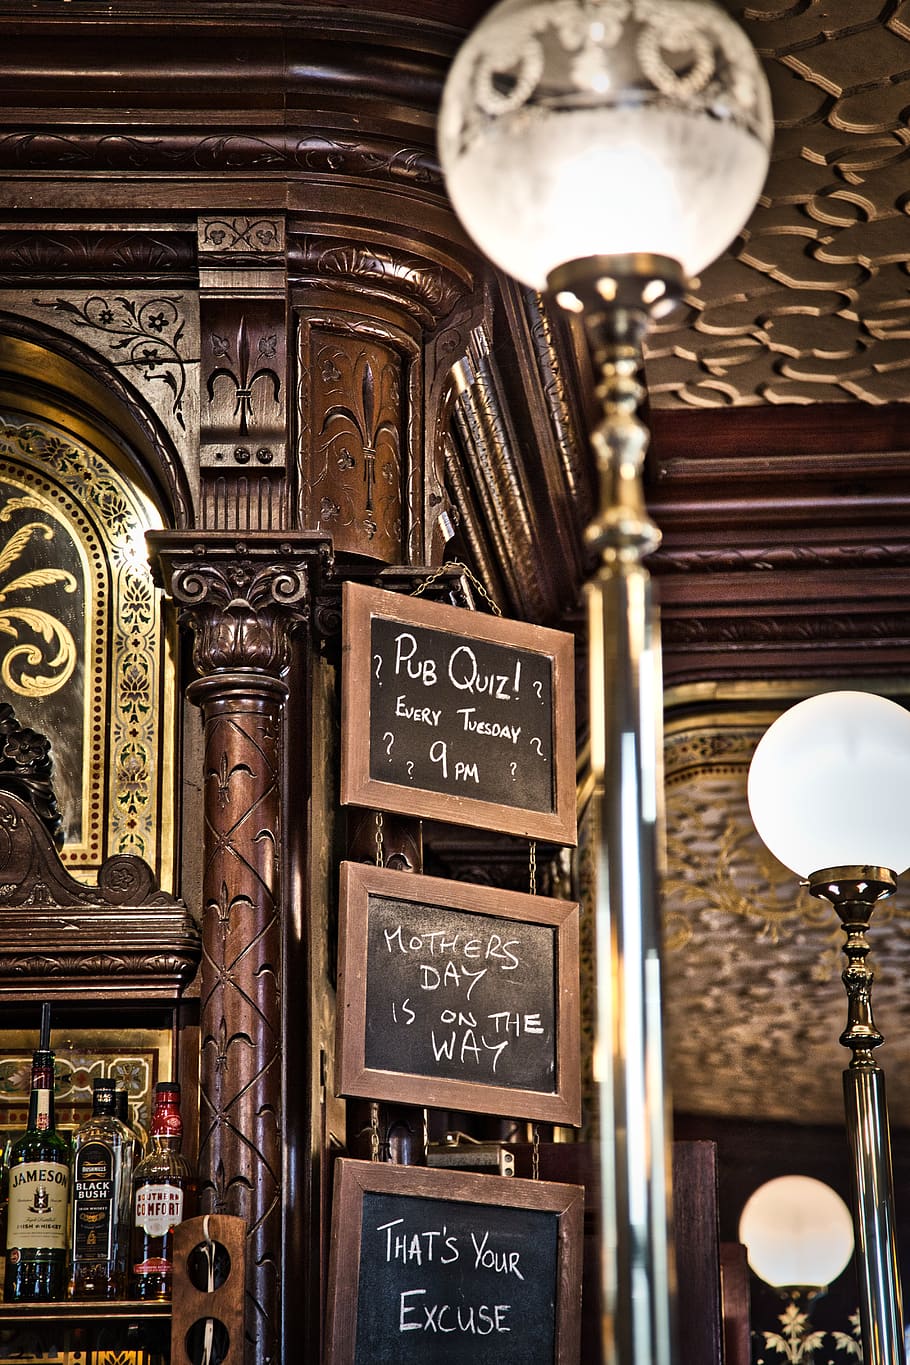 ? PUB QUIZ! ?
EVERY TUESDAY ?
? ? 9PM ?
MOTHERS
DAY
IS ON THE
WAY
THAT'S YOUR
EXCUSE
JAMESON
IRISH WHISKEY
BUSHMILLS
BLACK
BUSH
IRISH WHISKEY
SOUTHERN
COMFORT